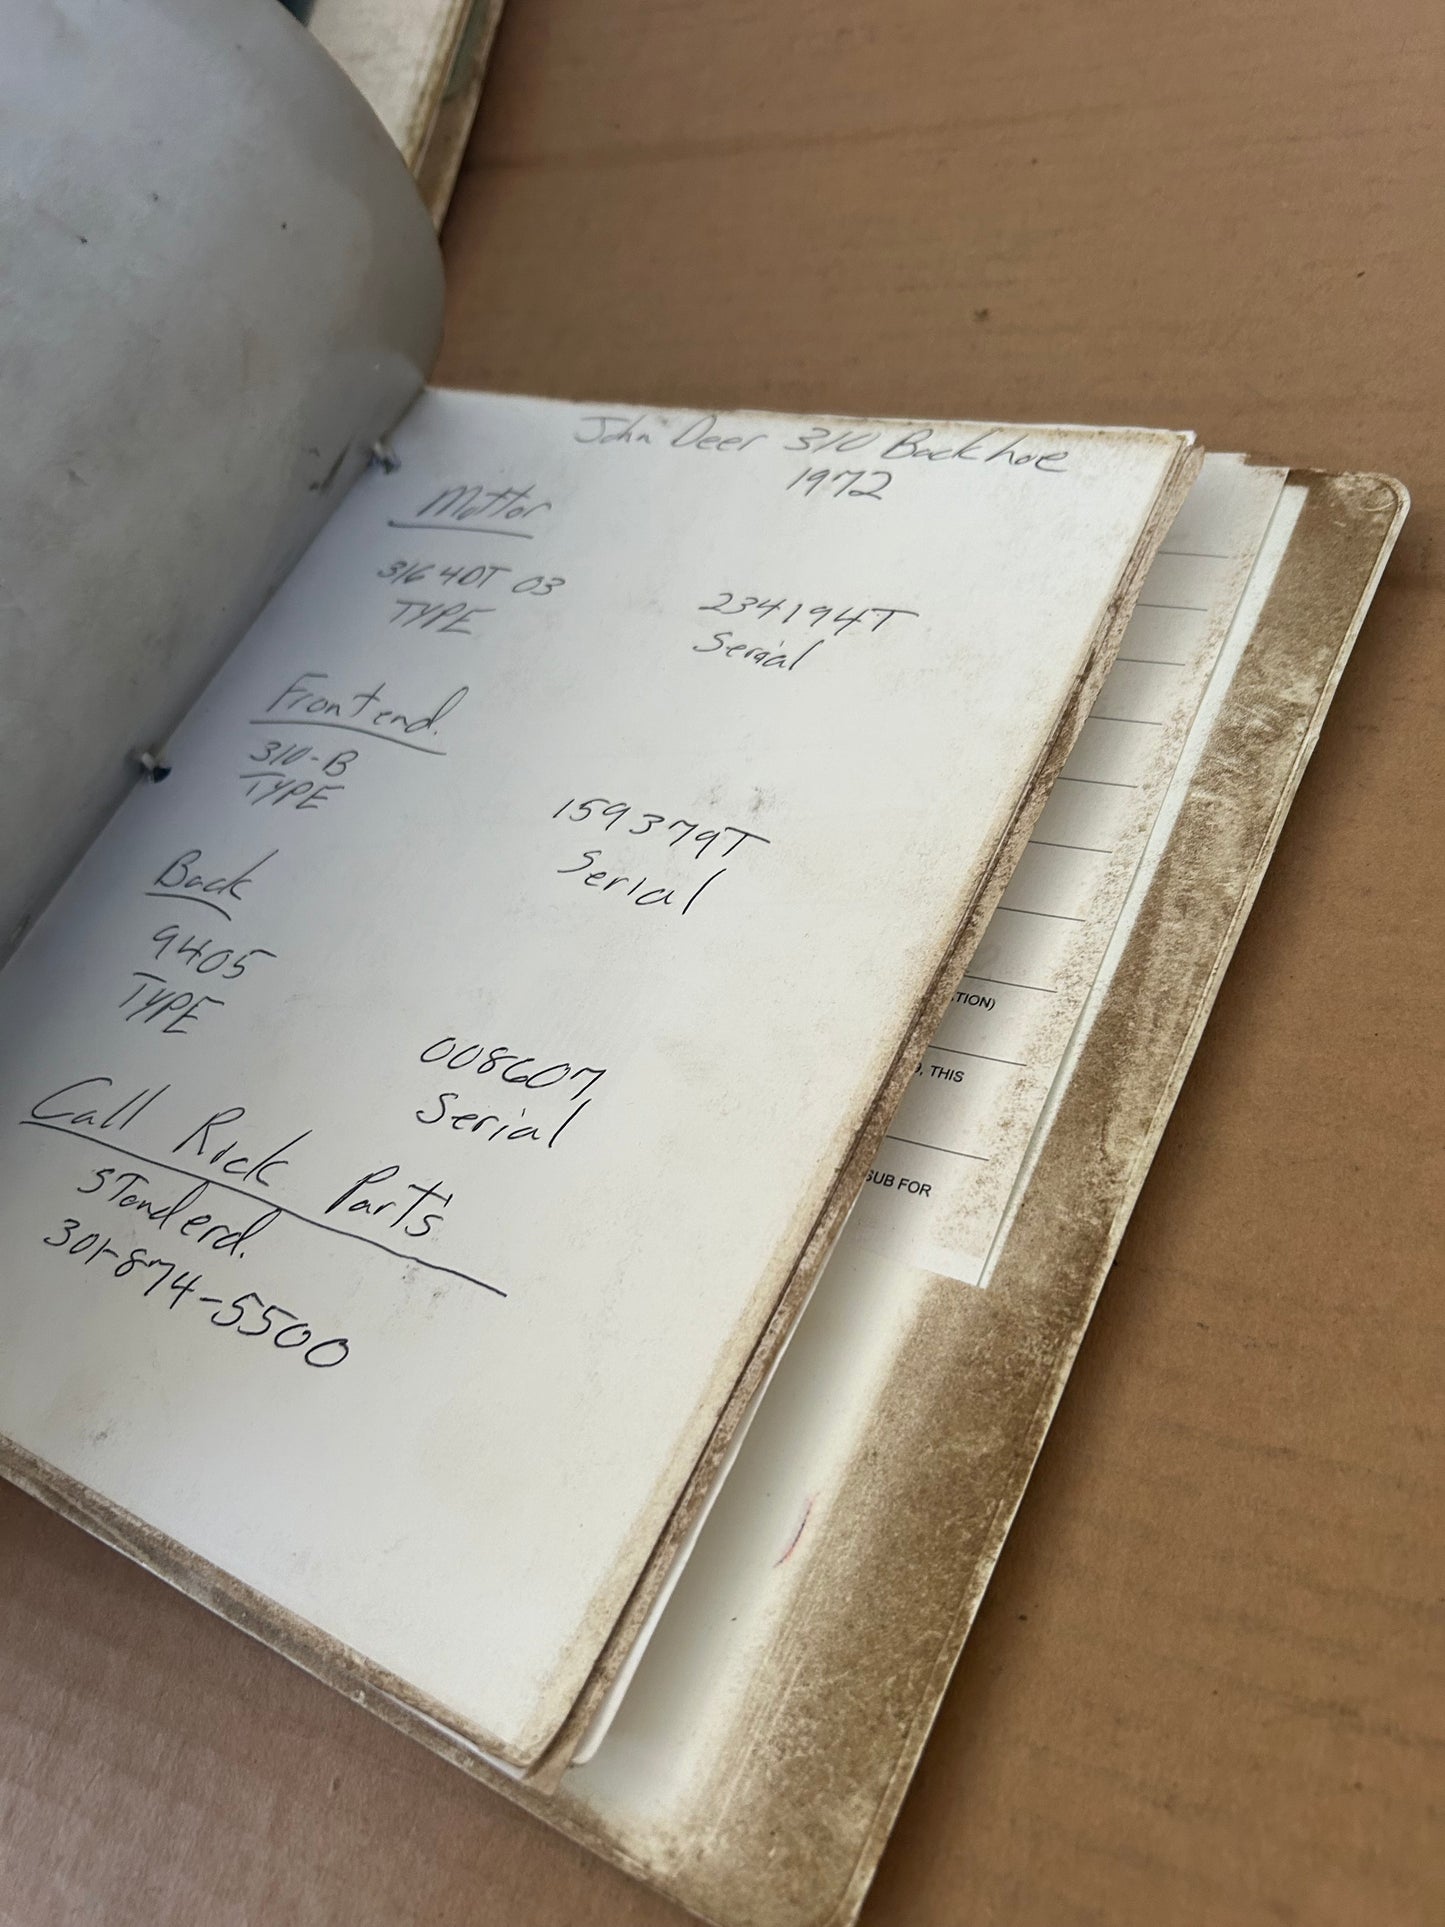 John Deer 310 Backhoe
1972
Mottor
3164DT 03
TYPE
234194T
Serial
Frontend.
310-B
TYPE
159379T
Serial
Back
9405
TYPE
008607
Serial
Call Rick Parts
STanderd.
301-874-5500
TION)
, THIS
SUB FOR